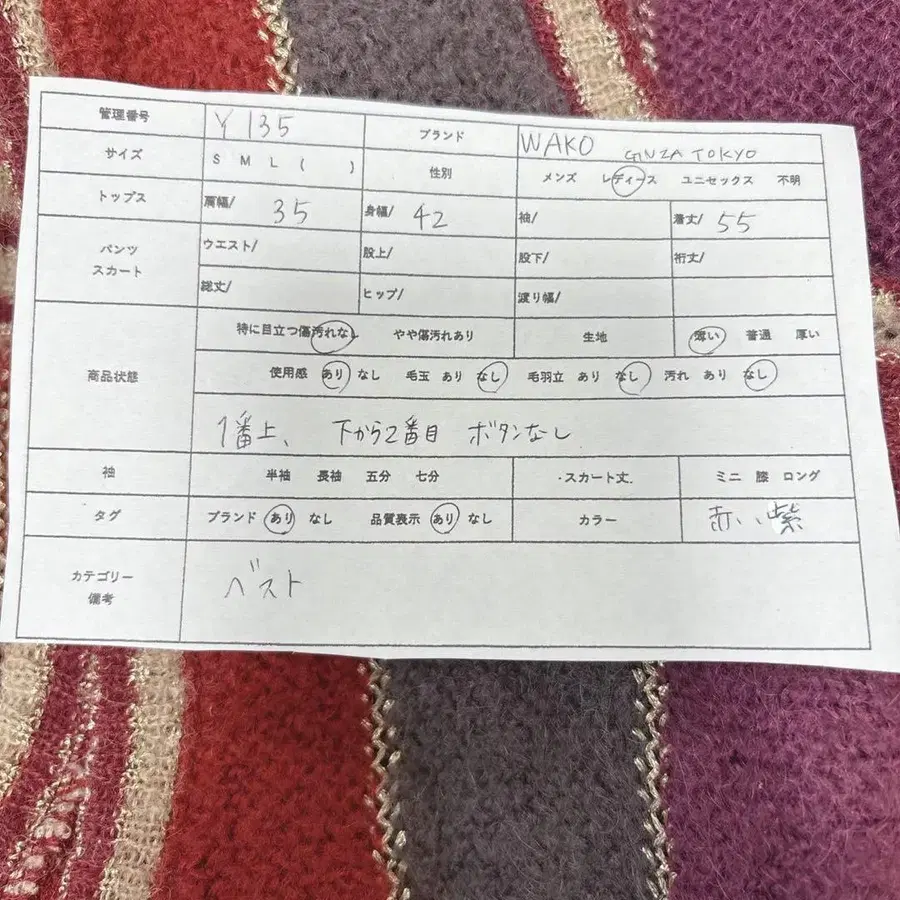 管理番号 Y 135 ブランド WAKO GINZA TOKYO
サイズ S M L ( ) 性別 メンズ レディース ユニセックス 不明
トップス 肩幅/ 35 身幅/ 42 袖/ 着丈/ 55
パンツ スカート ウエスト/ 股上/ 股下/ 裄丈/
総丈/ ヒップ/ 渡り幅/
商品状態 特に目立つ傷汚れなし やや傷汚れあり 生地 薄い 普通 厚い
使用感 あり なし 毛玉 あり なし 毛羽立 あり なし 汚れ あり なし
1番上、 下から2番目 ボタンなし
袖 半袖 長袖 五分 七分 ・スカート丈. ミニ 膝 ロング
タグ ブランド あり なし 品質表示 あり なし カラー 赤い、紫
カテゴリー 備考 ベスト